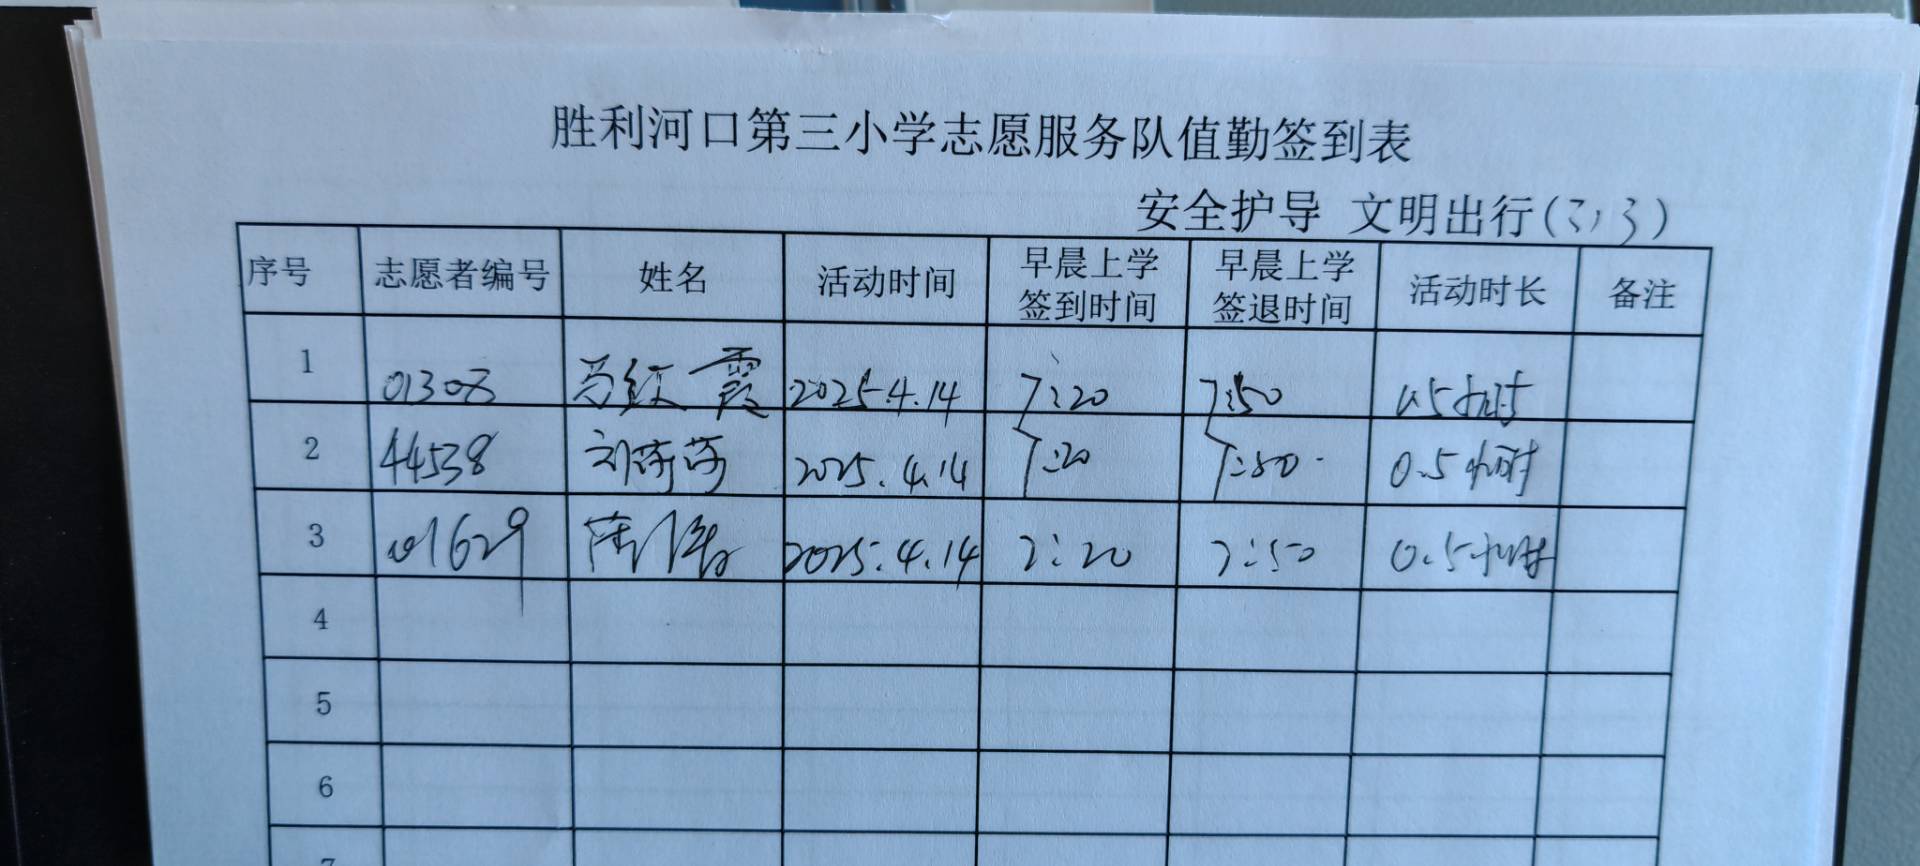 胜利河口第三小学志愿服务队值勤签到表
安全护导 文明出行(3,3)
序号 志愿者编号 姓名 活动时间 早晨上学签到时间 早晨上学签退时间 活动时长 备注
1 01308 马红霞 2025.4.14 7:20 7:50 0.5小时
2 44538 刘莎莎 2025.4.14 7:20 7:50 0.5小时
3 01629 2025.4.14 7:20 7:50 0.5小时
4
5
6
7